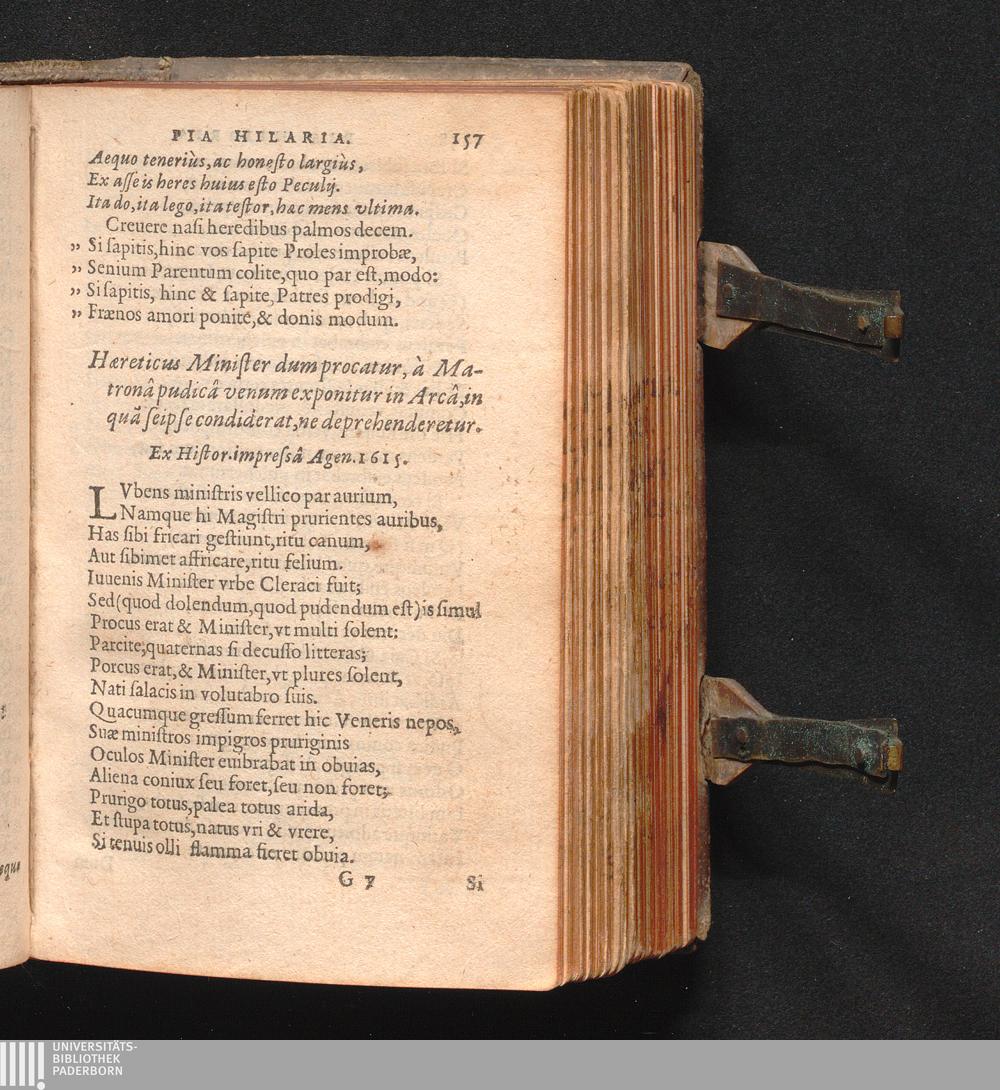 PIA HILARIA. 157
Aequo teneriùs, ac honeſto largiùs,
Ex aſſe is heres huius eſto Peculij.
Ita do, ita lego, ita teſtor, hæc mens vltima.
Creuere naſi heredibus palmos decem.
„ Si ſapitis, hinc vos ſapite Proles improbæ,
„ Senium Parentum colite, quo par eſt, modo:
„ Si ſapitis, hinc & ſapite, Patres prodigi,
„ Frænos amori ponite, & donis modum.
Hæreticus Miniſter dum procatur, à Ma-
tronâ pudicâ venum exponitur in Arcâ, in
quâ ſeipſe condiderat, ne deprehenderetur.
Ex Hiſtor. impreſsâ Agen. 1615.
LVbens miniſtris vellico par aurium,
Namque hi Magiſtri prurientes auribus,
Has ſibi fricari geſtiunt, ritu canum,
Aut ſibimet affricare, ritu felium.
Iuuenis Miniſter vrbe Cleraci fuit;
Sed (quod dolendum, quod pudendum eſt) is ſimul
Procus erat & Miniſter, vt multi ſolent:
Parcite, quaternas ſi decuſſo litteras;
Porcus erat, & Miniſter, vt plures ſolent,
Nati ſalacis in volutabro ſuis.
Quacumque greſſum ferret hic Veneris nepos,
Suæ miniſtros impigros pruriginis
Oculos Miniſter euibrabat in obuias,
Aliena coniux ſeu foret, ſeu non foret;
Prurigo totus, palea totus arida,
Et ſtupa totus, natus vri & vrere,
Si tenuis olli flamma fieret obuia.
G 7 Si
UNIVERSITÄTS-
BIBLIOTHEK
PADERBORN